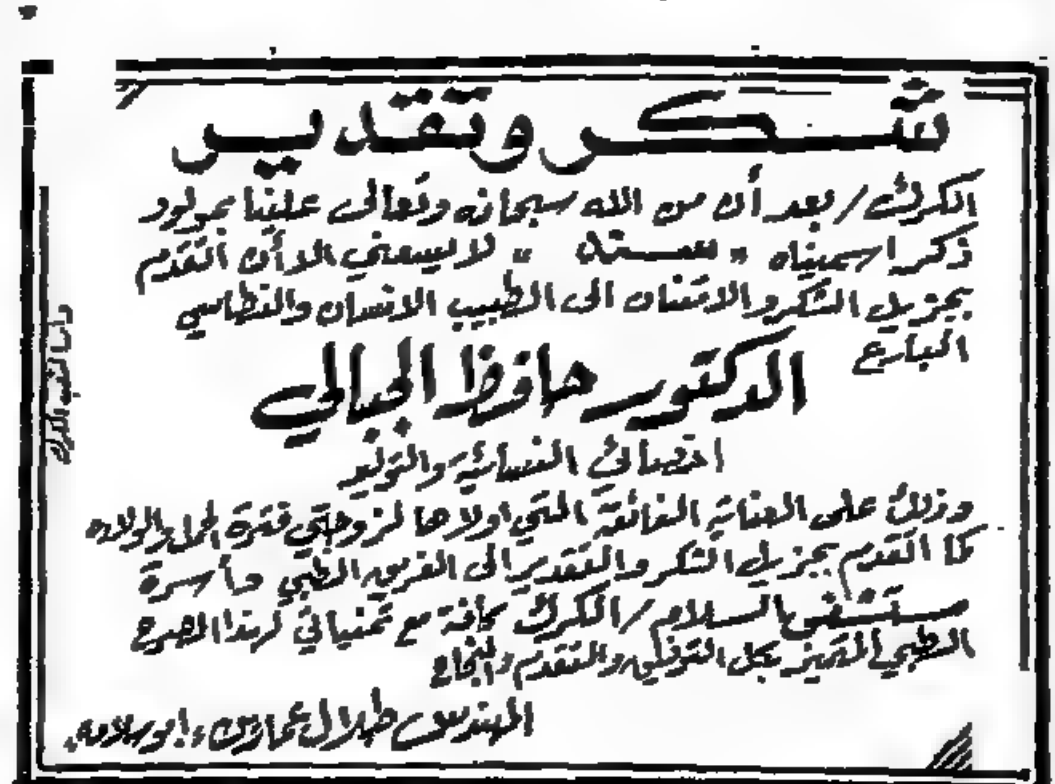 شكر وتقدير
الكرك / بعد أن من الله سبحانه وتعالى علينا بمولود
ذكر اسميناه " " لا يسعني الا أن اتقدم
بجزيل الشكر والامتنان الى الطبيب الانسان والنطاسي
البارع
الدكتور حافظ الجبالي
اخصائي النسائية والتوليد
وذلك على العناية الفائقة التي اولاها لزوجتي فترة الحمل والولاده
كما اتقدم بجزيل الشكر والتقدير الى الفريق الطبي وأسرة
مستشفى السلام / الكرك كافة مع تمنياتي لهذا الصرح
الطبي المتميز بكل التوفيق والتقدم والنجاح
المهندس طلال